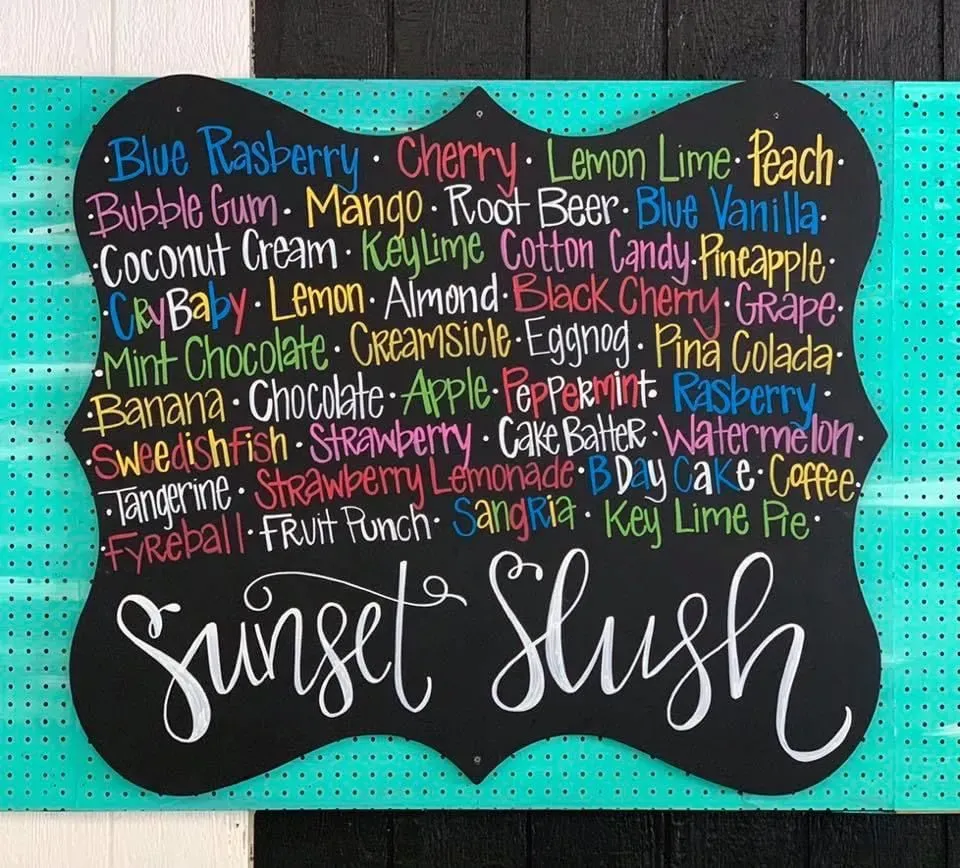 Blue Rasberry · Cherry · Lemon Lime · Peach ·
Bubble Gum · Mango · Root Beer · Blue Vanilla ·
· Coconut Cream · KeyLime Cotton Candy · Pineapple ·
· CryBaby · Lemon · Almond · Black Cherry · Grape ·
· Mint Chocolate · Creamsicle · Eggnog · Pina Colada ·
· Banana · Chocolate · Apple · Peppermint · Rasberry ·
· SweedishFish · Strawberry · Cake Batter · Watermelon ·
· Tangerine · Strawberry Lemonade · BDay Cake · Coffee ·
· Fyreball · Fruit Punch · Sangria · Key Lime Pie ·
Sunset Slush